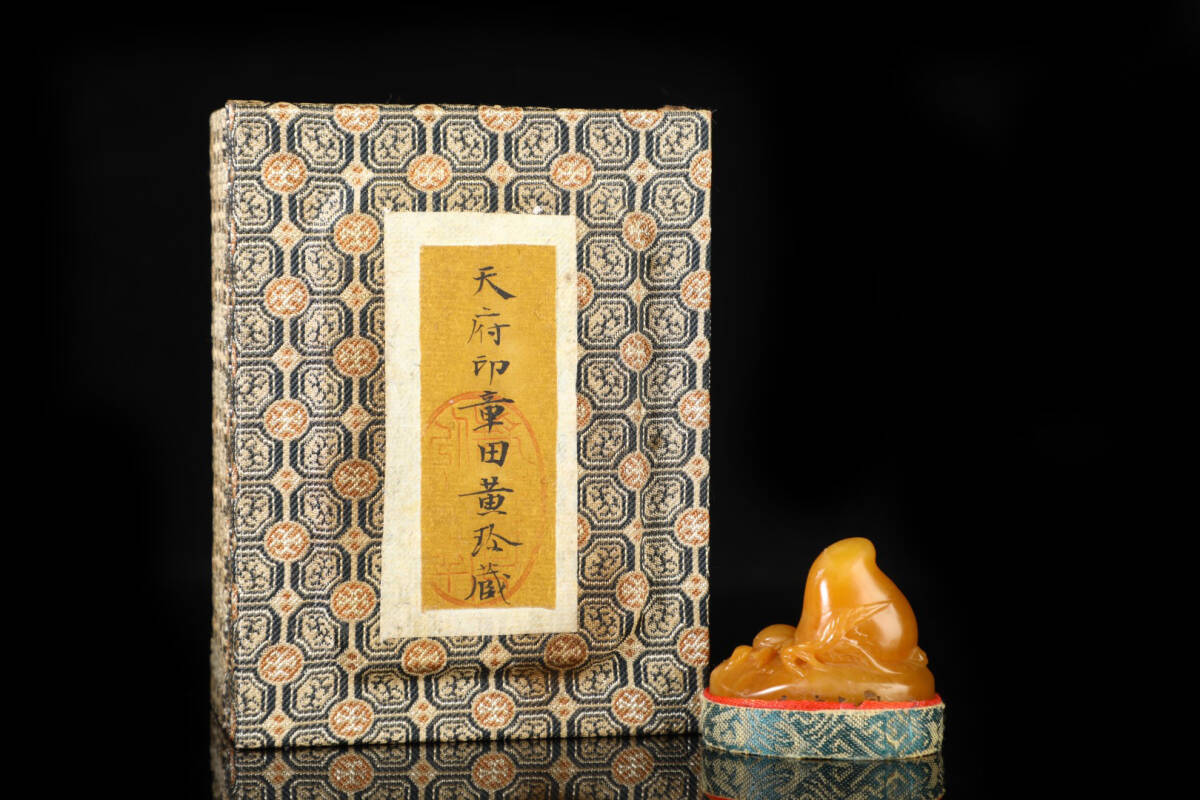 天府印章田黄珍蔵